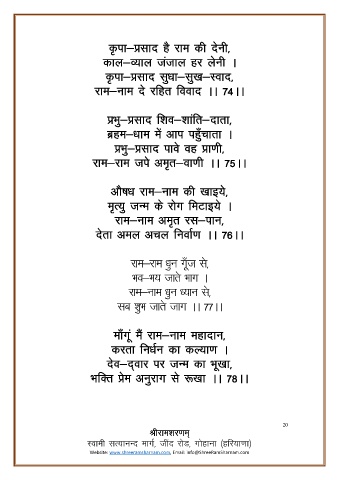 कृपा–प्रसाद है राम की देनी,
काल–व्याल जंजाल हर लेनी ।
कृपा–प्रसाद सुधा–सुख–स्वाद,
राम–नाम दे रहित विवाद ।। 74।।
प्रभु–प्रसाद शिव–शांति–दाता,
ब्रहम–धाम में आप पहुँचाता ।
प्रभु–प्रसाद पावे वह प्राणी,
राम–राम जपे अमृत–वाणी ।। 75।।
औषध राम–नाम की खाइये,
मृत्यु जन्म के रोग मिटाइये ।
राम–नाम अमृत रस–पान,
देता अमल अचल निर्वाण ।। 76।।
राम–राम धुन गूँज से,
भव–भय जाते भाग ।
राम–नाम धुन ध्यान से,
सब शुभ जाते जाग ।। 77।।
माँगूं मैं राम–नाम महादान,
करता निर्धन का कल्याण ।
देव–द्वार पर जन्म का भूखा,
भक्ति प्रेम अनुराग से रूखा ।। 78।।
20
श्रीरामशरणम्
स्वामी सत्यानन्द मार्ग, जींद रोड, गोहाना (हरियाणा)
Website: www.shreeramsharnam.com, Email: info@ShreeRamSharnam.com